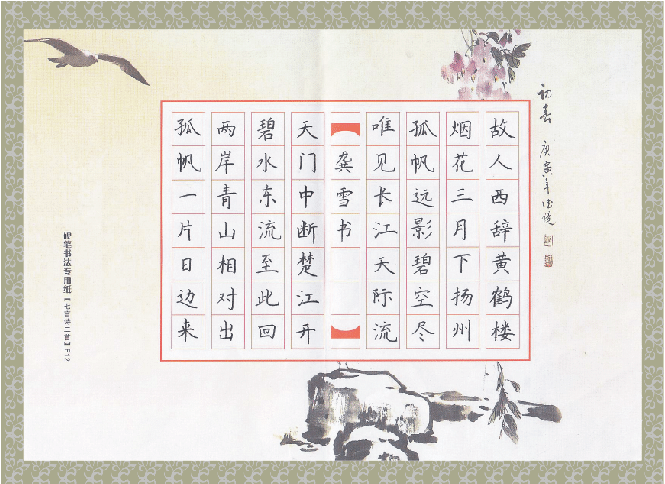 故人西辞黄鹤楼
烟花三月下扬州
孤帆远影碧空尽
唯见长江天际流
龚雪书
天门中断楚江开
碧水东流至此回
两岸青山相对出
孤帆一片日边来
初春
庚寅年
硬笔书法专用纸【七言诗二首】